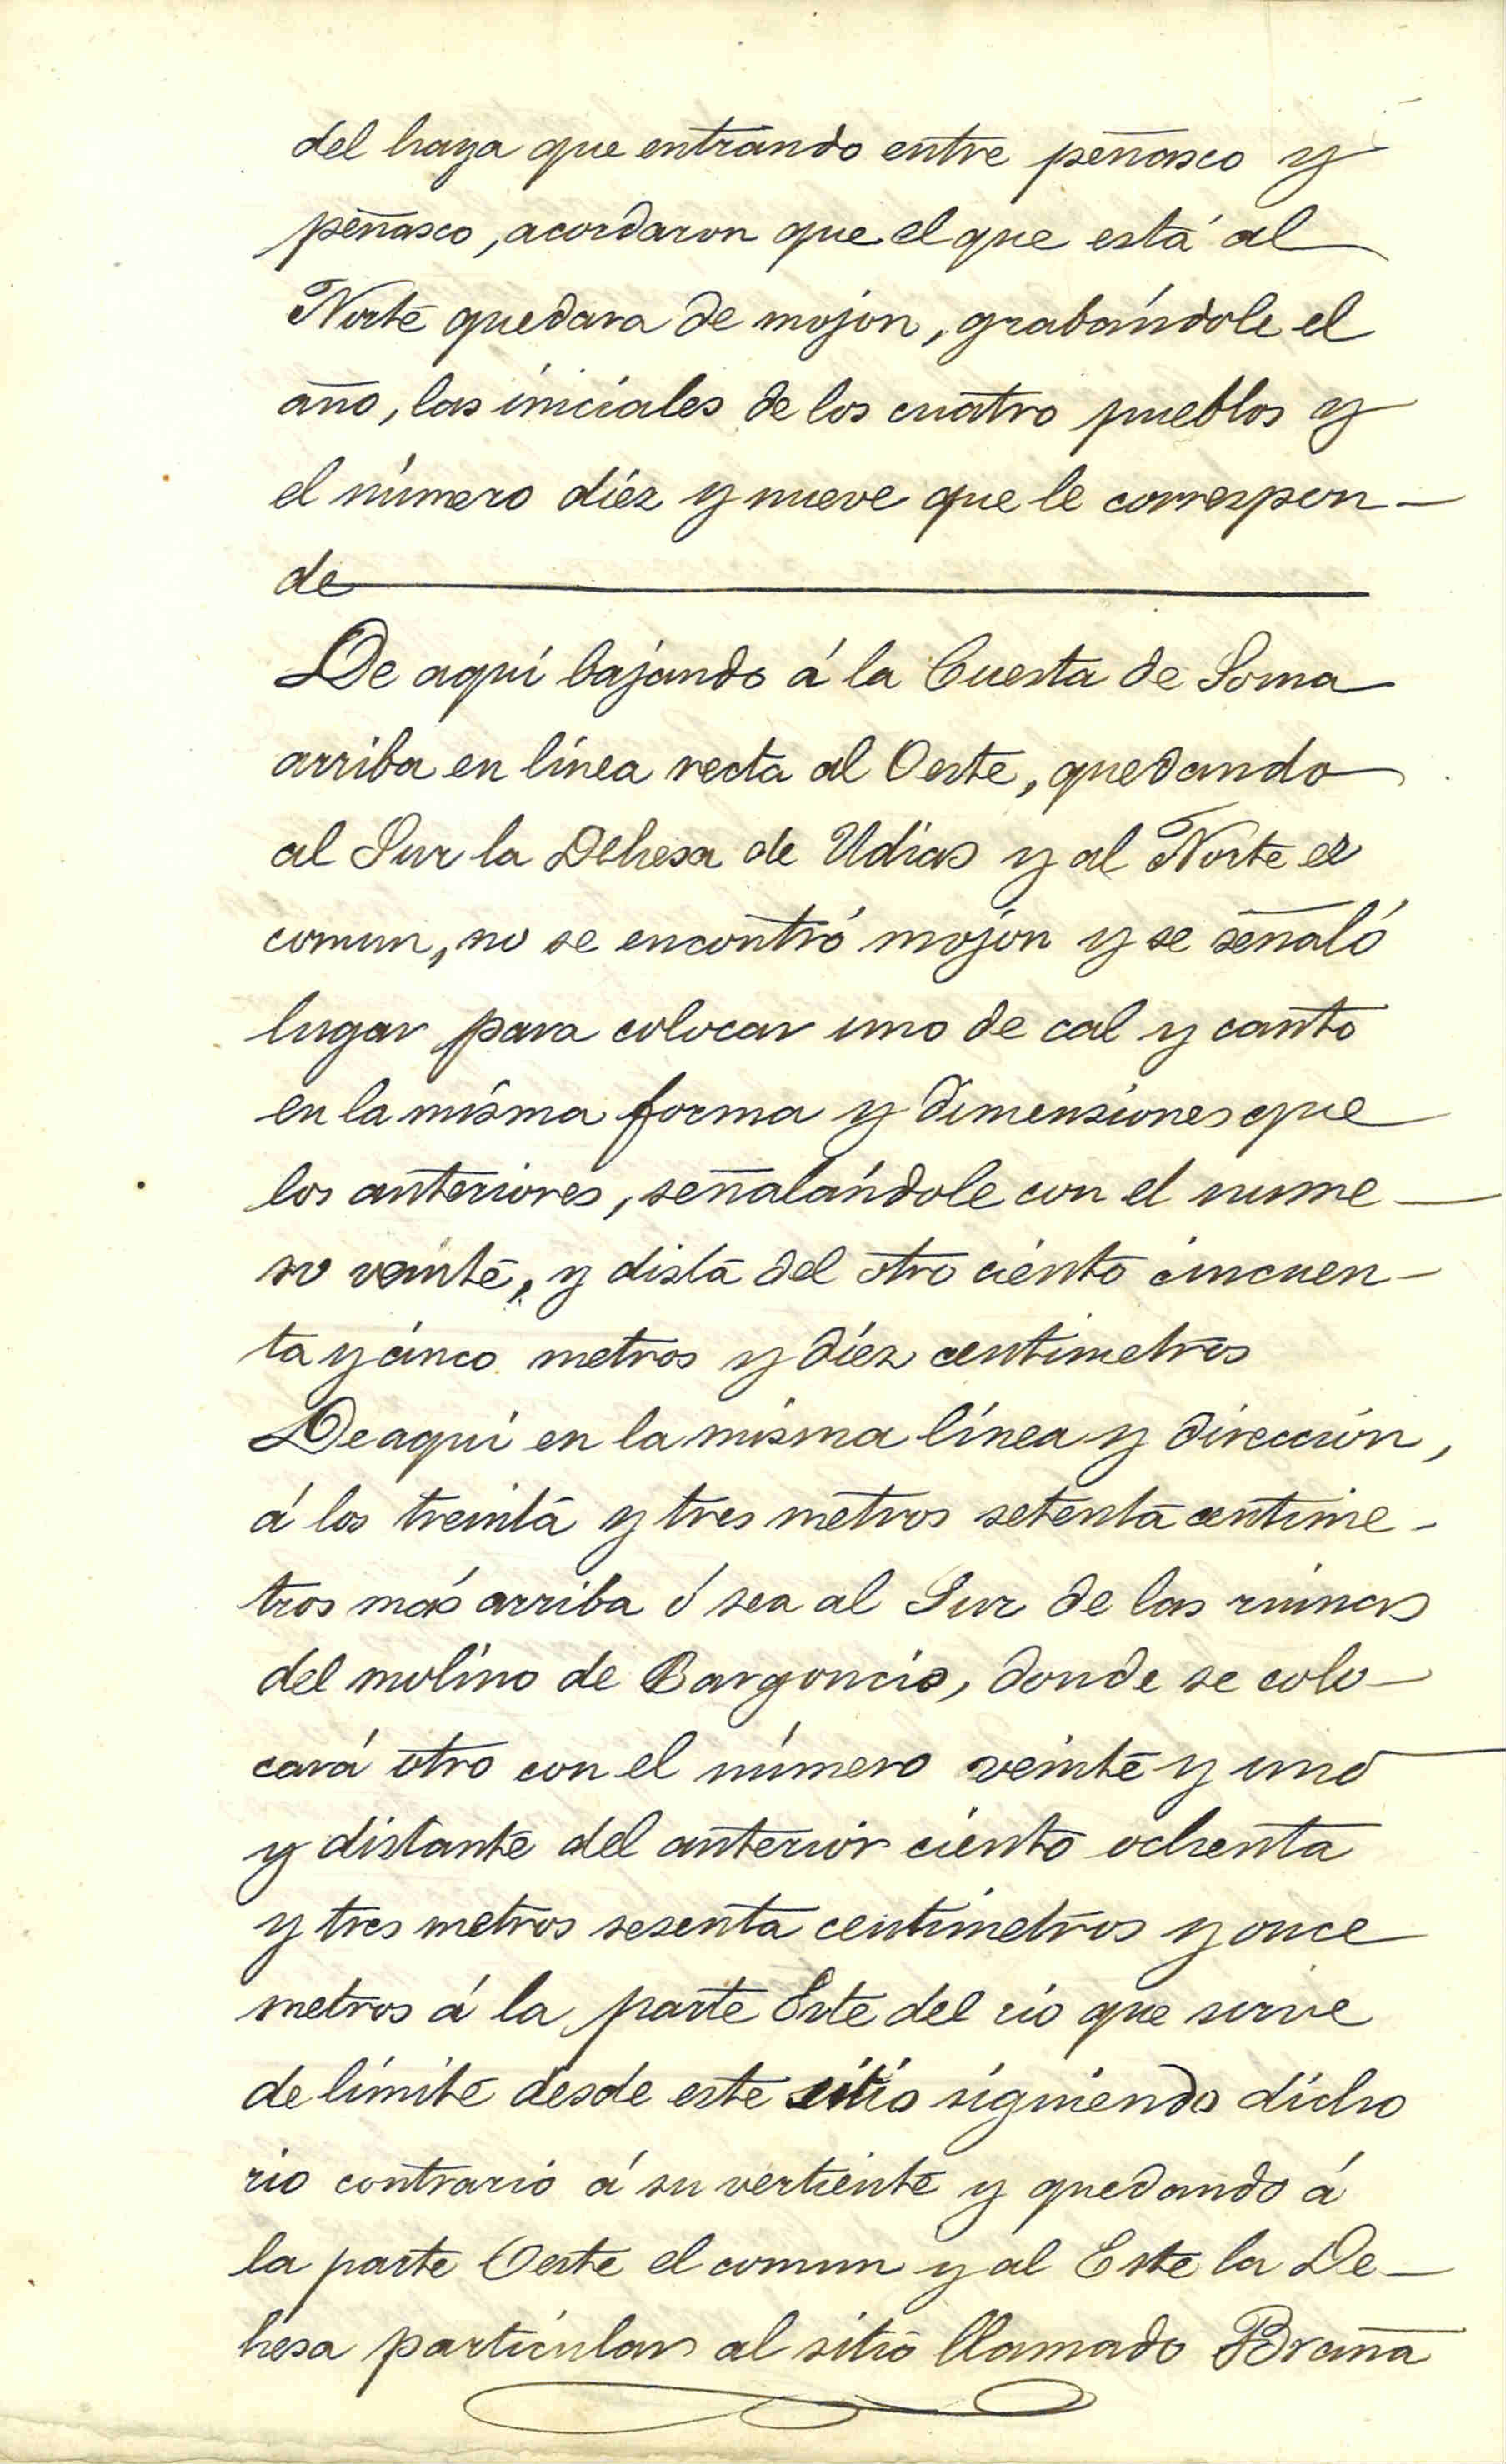 del haya que entrando entre peñasco y
peñasco, acordaron que el que está al
Norte quedara de mojon, grabándole el
año, las iniciales de los cuatro pueblos y
el número diez y nueve que le correspon-
de
De aquí bajando á la Cuesta de Soma
arriba en línea recta al Oeste, quedando
al Sur la Dehesa de Udias y al Norte el
comun, no se encontró mojon y se señaló
lugar para colocar uno de cal y canto
en la misma forma y dimensiones que
los anteriores, señalándole con el nume-
ro veinte, y dista del otro ciento cincuen-
ta y cinco metros y diez centimetros
De aquí en la misma línea y dirección,
á los treinta y tres metros setenta centime-
tros más arriba ó sea al Sur de las ruinas
del molino de Bargoncio, donde se colo-
cará otro con el número veinte y uno
y distante del anterior ciento ochenta
y tres metros sesenta centimetros y once
metros á la parte Este del rio que sirve
de límite desde este sitio siguiendo dicho
rio contrario á su vertiente y quedando á
la parte Oeste el comun y al Este la De-
hesa particular al sitio llamado Braña